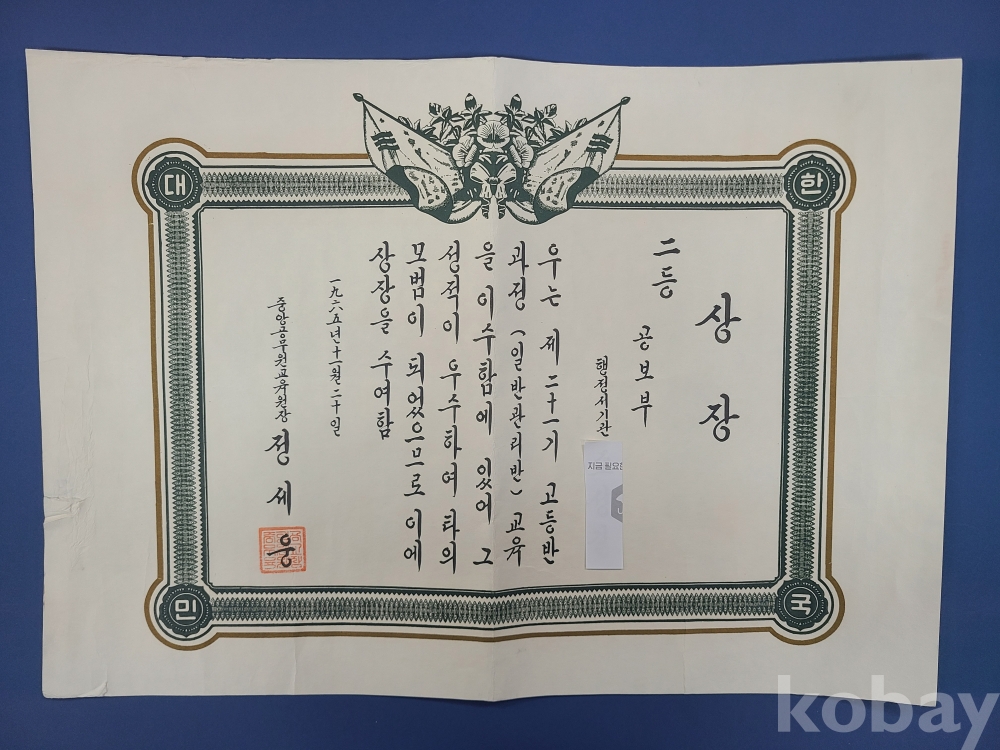 대한민국
상장
二등
공보부
행정서기관
지금 필요한
우는 제二十一기 고등반
과정 (일반관리반) 교육
을 이수함에 있어 그
성적이 우수하여 타의
모범이 되었으므로 이에
상장을 수여함
一九六五년十一월二十일
중앙공무원교육원장 정세웅
kobay